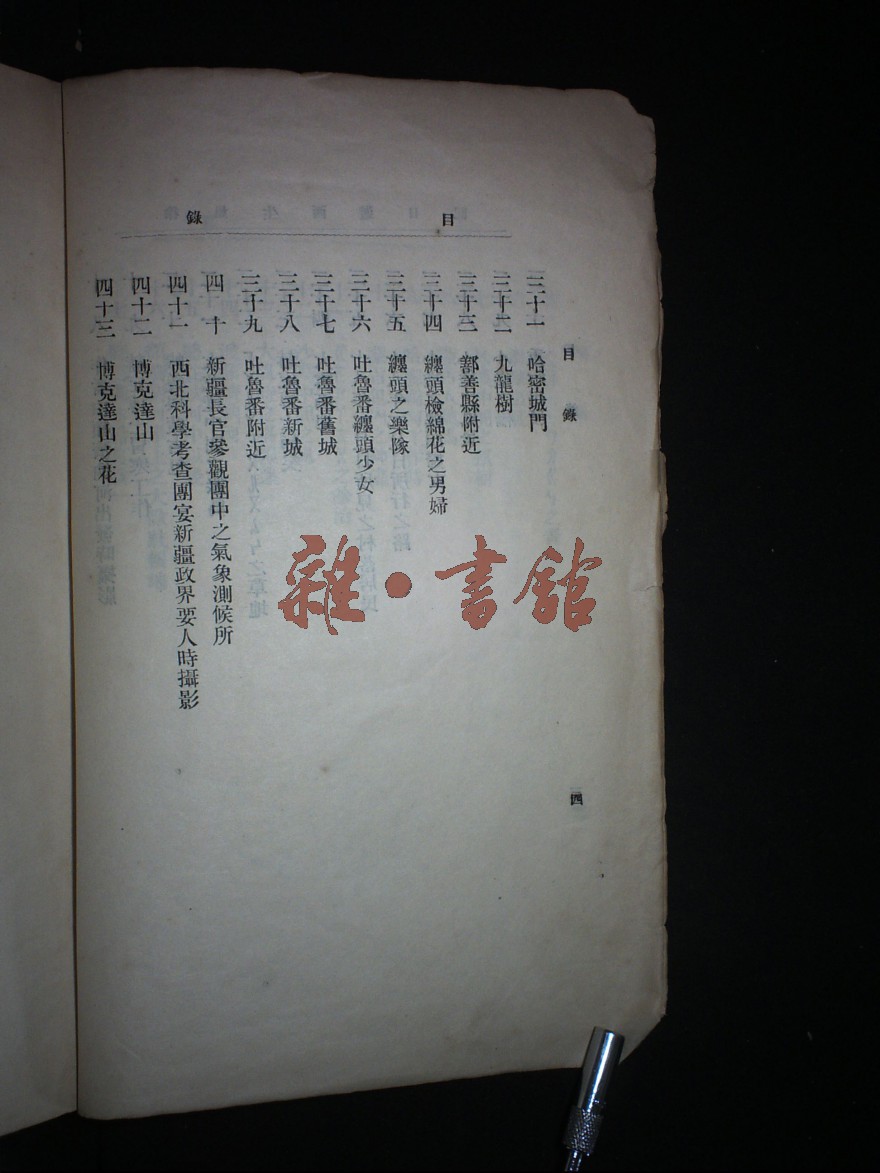 目錄
目錄
三十一 哈密城門
三十二 九龍樹
三十三 鄯善縣附近
三十四 纏頭檢綿花之男婦
三十五 纏頭之樂隊
三十六 吐魯番纏頭少女
三十七 吐魯番舊城
三十八 吐魯番新城
三十九 吐魯番附近
四十 新疆長官參觀團中之氣象測候所
四十一 西北科學考查團宴新疆政界要人時攝影
四十二 博克達山
四十三 博克達山之花
四
雜·書館